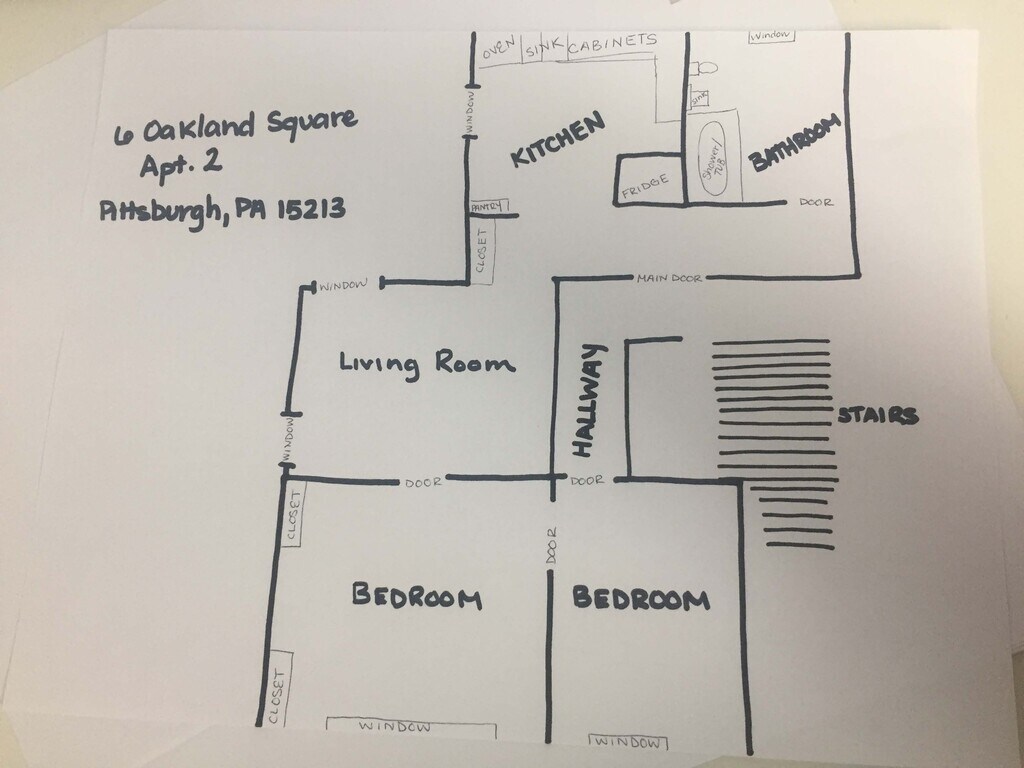 6 Oakland Square
Apt. 2
Pittsburgh, PA 15213
OVEN
SINK
CABINETS
Window
WINDOW
KITCHEN
SINK
Shower/
TUB
BATHROOM
FRIDGE
PANTRY
DOOR
CLOSET
WINDOW
MAIN DOOR
Living Room
HALLWAY
STAIRS
WINDOW
DOOR
DOOR
CLOSET
DOOR
BEDROOM
BEDROOM
CLOSET
WINDOW
WINDOW